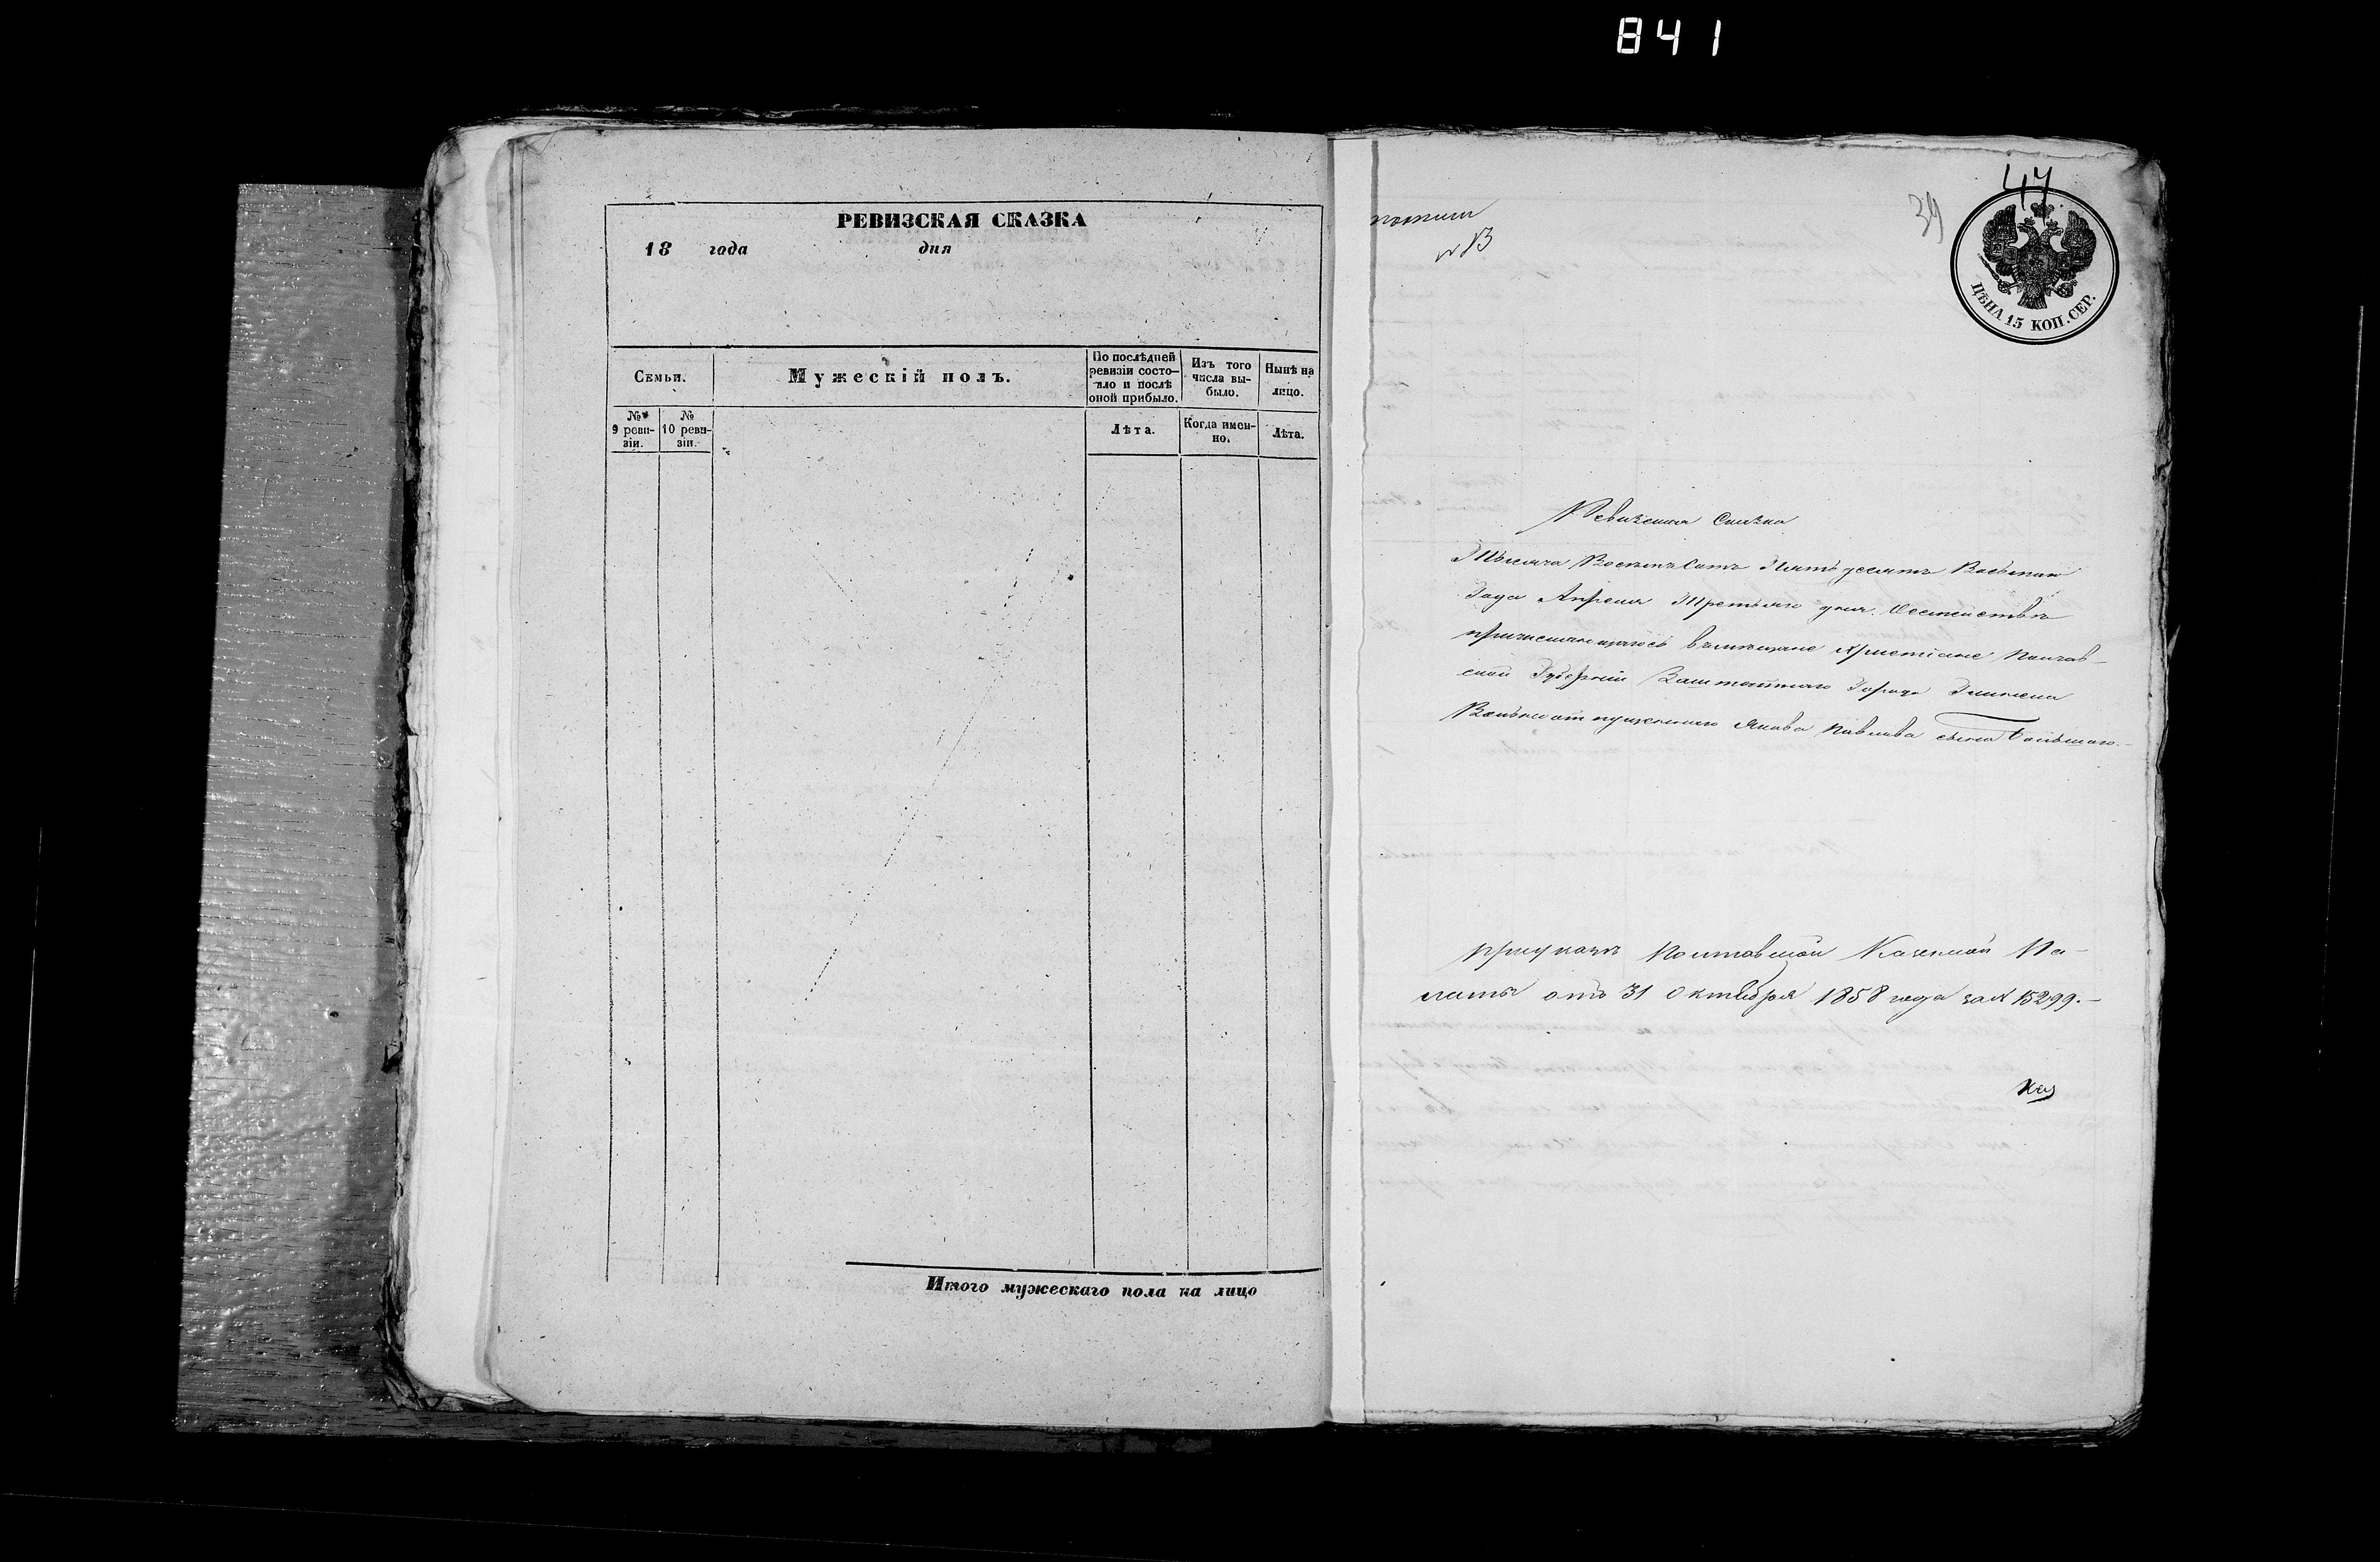 841
РЕВИЗСКАЯ СКАЗКА
18 года дня
Семьи.
Мужескій полъ.
По послѣдней ревизіи состо-
яло и послѣ
оной прибыло.
Изъ того
числа вы-
было.
Нынѣ на
лицо.
№
9 реви-
зіи.
№
10 реви-
зіи.
Лѣта.
Когда имен-
но.
Лѣта.
Итого мужескаго пола на лицо
39
47
ЦѢНА 15 КОП. СЕР.
Ревизская Сказка
Тысяча Восемъ Сотъ Пятьдесятъ Восьмаго
Года Апреля Третьяго дня. О семействѣ
причисляющагося въ мещане христіане Полтав-
ской Губерніи Заштатнаго Города Глинска
Вольноотпущеннаго Якова Павлова сына Большаго.
При указѣ Полтавской Казенной Па-
латы отъ 31 Октября 1858 года за № 15299.